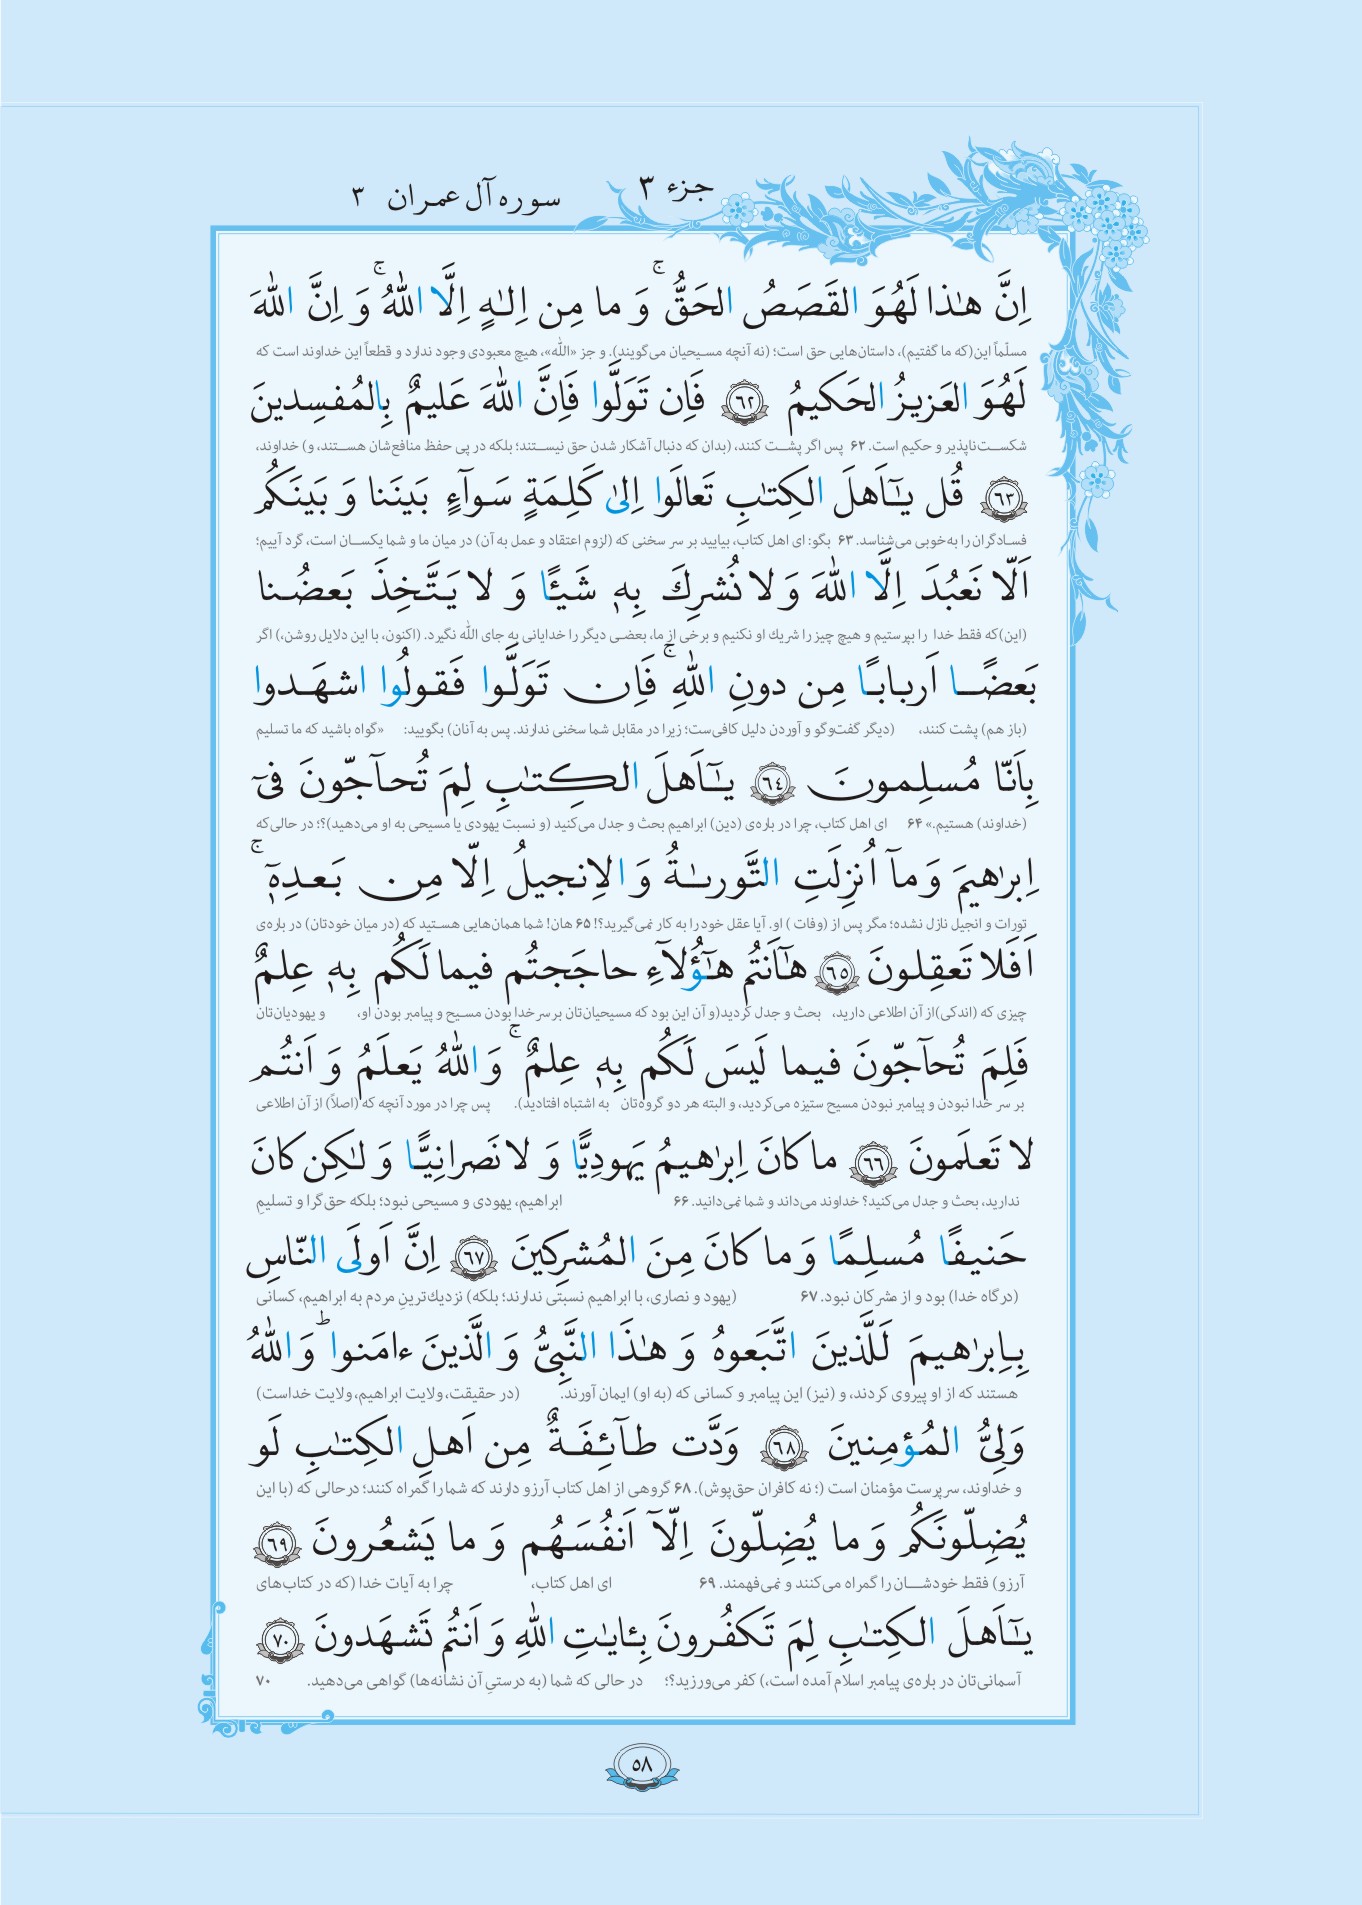 جزء ۳
سوره آل عمران ۳
اِنَّ هٰذا لَهُوَ القَصَصُ الحَقُّ ۚ وَ ما مِن اِلـٰهٍ اِلَّا اللهُ ۚ وَ اِنَّ اللهَ
مسلّماً این(که ما گفتیم)، داستان‌هایی حق است؛ (نه آنچه مسیحیان می‌گویند). و جز «الله»، هیچ معبودی وجود ندارد و قطعاً این خداوند است که
لَهُوَ العَزیزُ الحَکیمُ ﴿٦٢﴾ فَاِن تَوَلَّوا فَاِنَّ اللهَ عَلیمٌ بِالمُفسِدینَ
شکست‌ناپذیر و حکیم است. ۶۲ پس اگر پشت کنند، (بدان که دنبال آشکار شدن حق نیستند؛ بلکه در پی حفظ منافع‌شان هستند، و) خداوند،
﴿٦٣﴾ قُل یـٰٓاَهلَ الکِتٰبِ تَعالَوا اِلیٰ کَلِمَةٍ سَوآءٍ بَینَنا وَ بَینَکُم
فسادگران را به‌خوبی می‌شناسد. ۶۳ بگو: ای اهل کتاب، بیایید بر سر سخنی که (لزوم اعتقاد و عمل به آن) در میان ما و شما یکسان است، گرد آییم؛
اَلّا نَعبُدَ اِلَّا اللهَ وَ لا نُشرِكَ بِهٖ شَیـًٔا وَ لا یَتَّخِذَ بَعضُنا
(این)که فقط خدا را بپرستیم و هیچ چیز را شریك او نکنیم و برخی از ما، بعضی دیگر را خدایانی به جای الله نگیرد. (اکنون، با این دلایل روشن،) اگر
بَعضًا اَربابًا مِن دونِ اللهِ ۚ فَاِن تَوَلَّوا فَقولُوا اشهَدوا
(باز هم) پشت کنند، (دیگر گفت‌وگو و آوردن دلیل کافی‌ست؛ زیرا در مقابل شما سخنی ندارند. پس به آنان) بگویید: «گواه باشید که ما تسلیم
بِاَنّا مُسلِمونَ ﴿٦٤﴾ یـٰٓاَهلَ الکِتٰبِ لِمَ تُحآجّونَ فیٓ
(خداوند) هستیم.» ۶۴ ای اهل کتاب، چرا در باره‌ی (دین) ابراهیم بحث و جدل می‌کنید (و نسبت یهودی یا مسیحی به او می‌دهید)؟؛ در حالی‌که
اِبرٰهیمَ وَ مآ اُنزِلَتِ التَّورىٰةُ وَ الاِنجیلُ اِلّا مِن بَعدِهٖٓ ۚ
تورات و انجیل نازل نشده؛ مگر پس از (وفات ) او. آیا عقل خود را به کار نمی‌گیرید؟! ۶۵ هان! شما همان‌هایی هستید که (در میان خودتان) در باره‌ی
اَفَلا تَعقِلونَ ﴿٦٥﴾ هـٰٓاَنتُم هـٰٓؤُلآءِ حاجَجتُم فیما لَکُم بِهٖ عِلمٌ
چیزی که (اندکی)از آن اطلاعی دارید، بحث و جدل کردید(و آن این بود که مسیحیان‌تان بر سر خدا بودن مسیح و پیامبر بودن او، و یهودیان‌تان
فَلِمَ تُحآجّونَ فیما لَیسَ لَکُم بِهٖ عِلمٌ ۚ وَ اللهُ یَعلَمُ وَ اَنتُم
بر سر خدا نبودن و پیامبر نبودن مسیح ستیزه می‌کردید، و البته هر دو گروه‌تان به اشتباه افتادید). پس چرا در مورد آنچه که (اصلاً) از آن اطلاعی
لا تَعلَمونَ ﴿٦٦﴾ ما کانَ اِبرٰهیمُ یَهودِیًّا وَ لا نَصرانِیًّا وَ لـٰکِن کانَ
ندارید، بحث و جدل می‌کنید؟ خداوند می‌داند و شما نمی‌دانید. ۶۶ ابراهیم، یهودی و مسیحی نبود؛ بلکه حق‌گرا و تسلیمِ
حَنیفًا مُسلِمًا وَ ما کانَ مِنَ المُشرِکینَ ﴿٦٧﴾ اِنَّ اَولَى النّاسِ
(درگاه خدا) بود و از مشرکان نبود. ۶۷ (یهود و نصاری، با ابراهیم نسبتی ندارند؛ بلکه) نزدیك‌ترینِ مردم به ابراهیم، کسانی
بِاِبرٰهیمَ لَلَّذینَ اتَّبَعوهُ وَ هـٰذَا النَّبِیُّ وَ الَّذینَ ءامَنوا ۗ وَ اللهُ
هستند که از او پیروی کردند، و (نیز) این پیامبر و کسانی که (به او) ایمان آورند. (در حقیقت، ولایت ابراهیم، ولایت خداست)
وَلِیُّ المُؤمِنینَ ﴿٦٨﴾ وَدَّت طآئِفَةٌ مِن اَهلِ الکِتٰبِ لَو
و خداوند، سرپرست مؤمنان است (؛ نه کافران حق‌پوش). ۶۸ گروهی از اهل کتاب آرزو دارند که شما را گمراه کنند؛ درحالی که (با این
یُضِلّونَکُم وَ ما یُضِلّونَ اِلّآ اَنفُسَهُم وَ ما یَشعُرونَ ﴿٦٩﴾
آرزو) فقط خودشان را گمراه می‌کنند و نمی‌فهمند. ۶۹ ای اهل کتاب، چرا به آیات خدا (که در کتاب‌های
یـٰٓاَهلَ الکِتٰبِ لِمَ تَکفُرونَ بِـٔایـٰتِ اللهِ وَ اَنتُم تَشهَدونَ ﴿٧٠﴾
آسمانی‌تان در باره‌ی پیامبر اسلام آمده است،) کفر می‌ورزید؟؛ در حالی که شما (به درستیِ آن نشانه‌ها) گواهی می‌دهید. ۷۰
۵۸